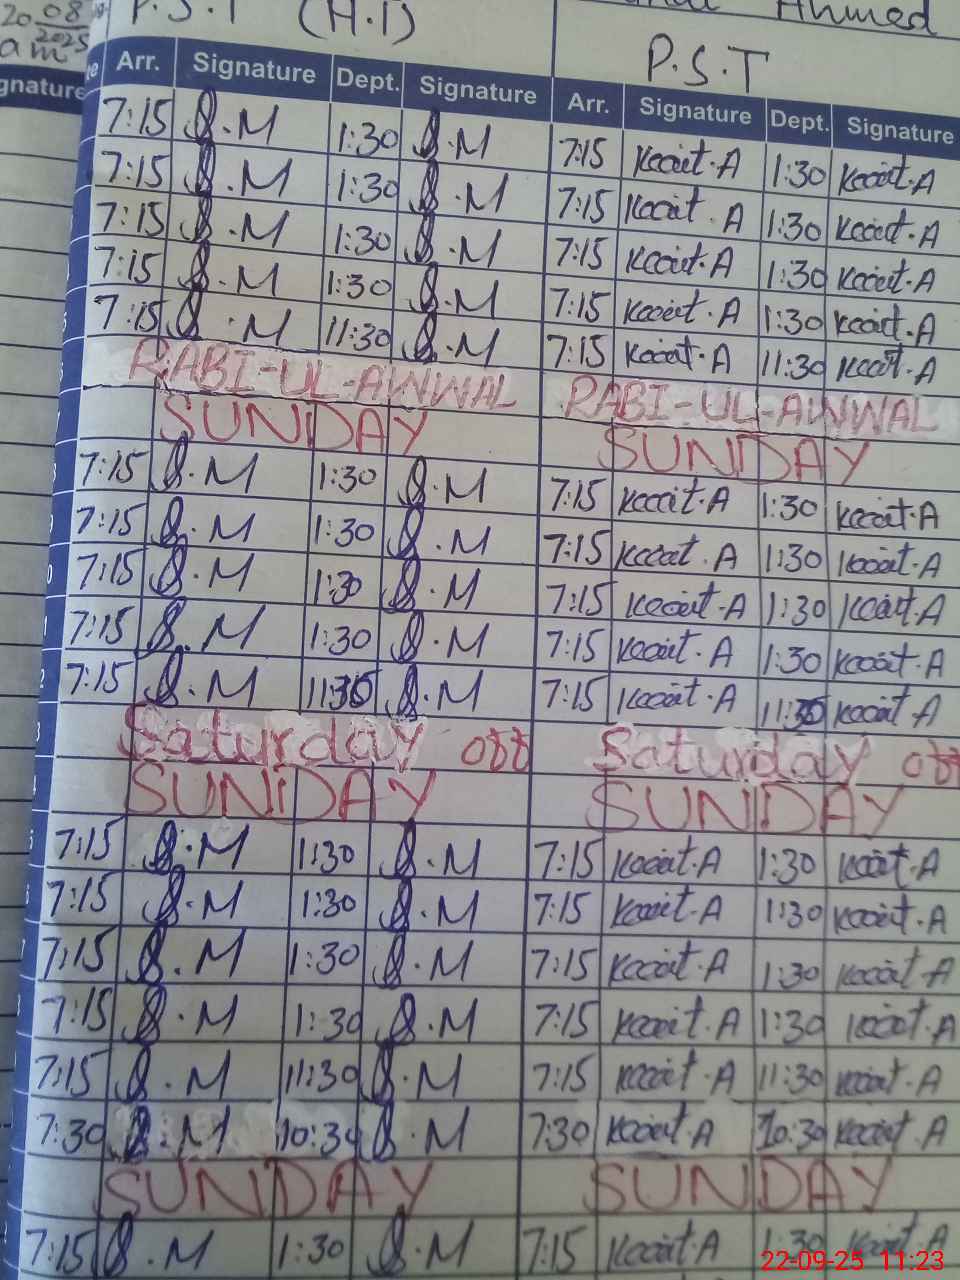 20 08 2025
am
P.S.T (H.T)
Ahmed
P.S.T
gnature
Arr. Signature Dept. Signature Arr. Signature Dept. Signature
7:15 S.M 1:30 S.M 7:15 Kcoait.A 1:30 Kcoait.A
7:15 S.M 1:30 S.M 7:15 Kcoait.A 1:30 Kcoait.A
7:15 S.M 1:30 S.M 7:15 Kcoait.A 1:30 Kcoait.A
7:15 S.M 1:30 S.M 7:15 Kcoait.A 1:30 Kcoait.A
7:15 S.M 11:30 S.M 7:15 Kcoait.A 11:30 Kcoait.A
RABI-UL-AWWAL RABI-UL-AWWAL
SUNDAY SUNDAY
7:15 S.M 1:30 S.M 7:15 Kcoait.A 1:30 Kcoait.A
7:15 S.M 1:30 S.M 7:15 Kcoait.A 1:30 Kcoait.A
7:15 S.M 1:30 S.M 7:15 Kcoait.A 1:30 Kcoait.A
7:15 S.M 1:30 S.M 7:15 Kcoait.A 1:30 Kcoait.A
7:15 S.M 11:30 S.M 7:15 Kcoait.A 11:30 Kcoait.A
Saturday off Saturday off
SUNDAY SUNDAY
7:15 S.M 1:30 S.M 7:15 Kcoait.A 1:30 Kcoait.A
7:15 S.M 1:30 S.M 7:15 Kcoait.A 1:30 Kcoait.A
7:15 S.M 1:30 S.M 7:15 Kcoait.A 1:30 Kcoait.A
7:15 S.M 1:30 S.M 7:15 Kcoait.A 1:30 Kcoait.A
7:15 S.M 11:30 S.M 7:15 Kcoait.A 11:30 Kcoait.A
7:30 S.M 10:30 S.M 7:30 Kcoait.A 10:30 Kcoait.A
SUNDAY SUNDAY
7:15 S.M 1:30 S.M 7:15 Kcoait.A 1:30 Kcoait.A
22-09-25 11:23